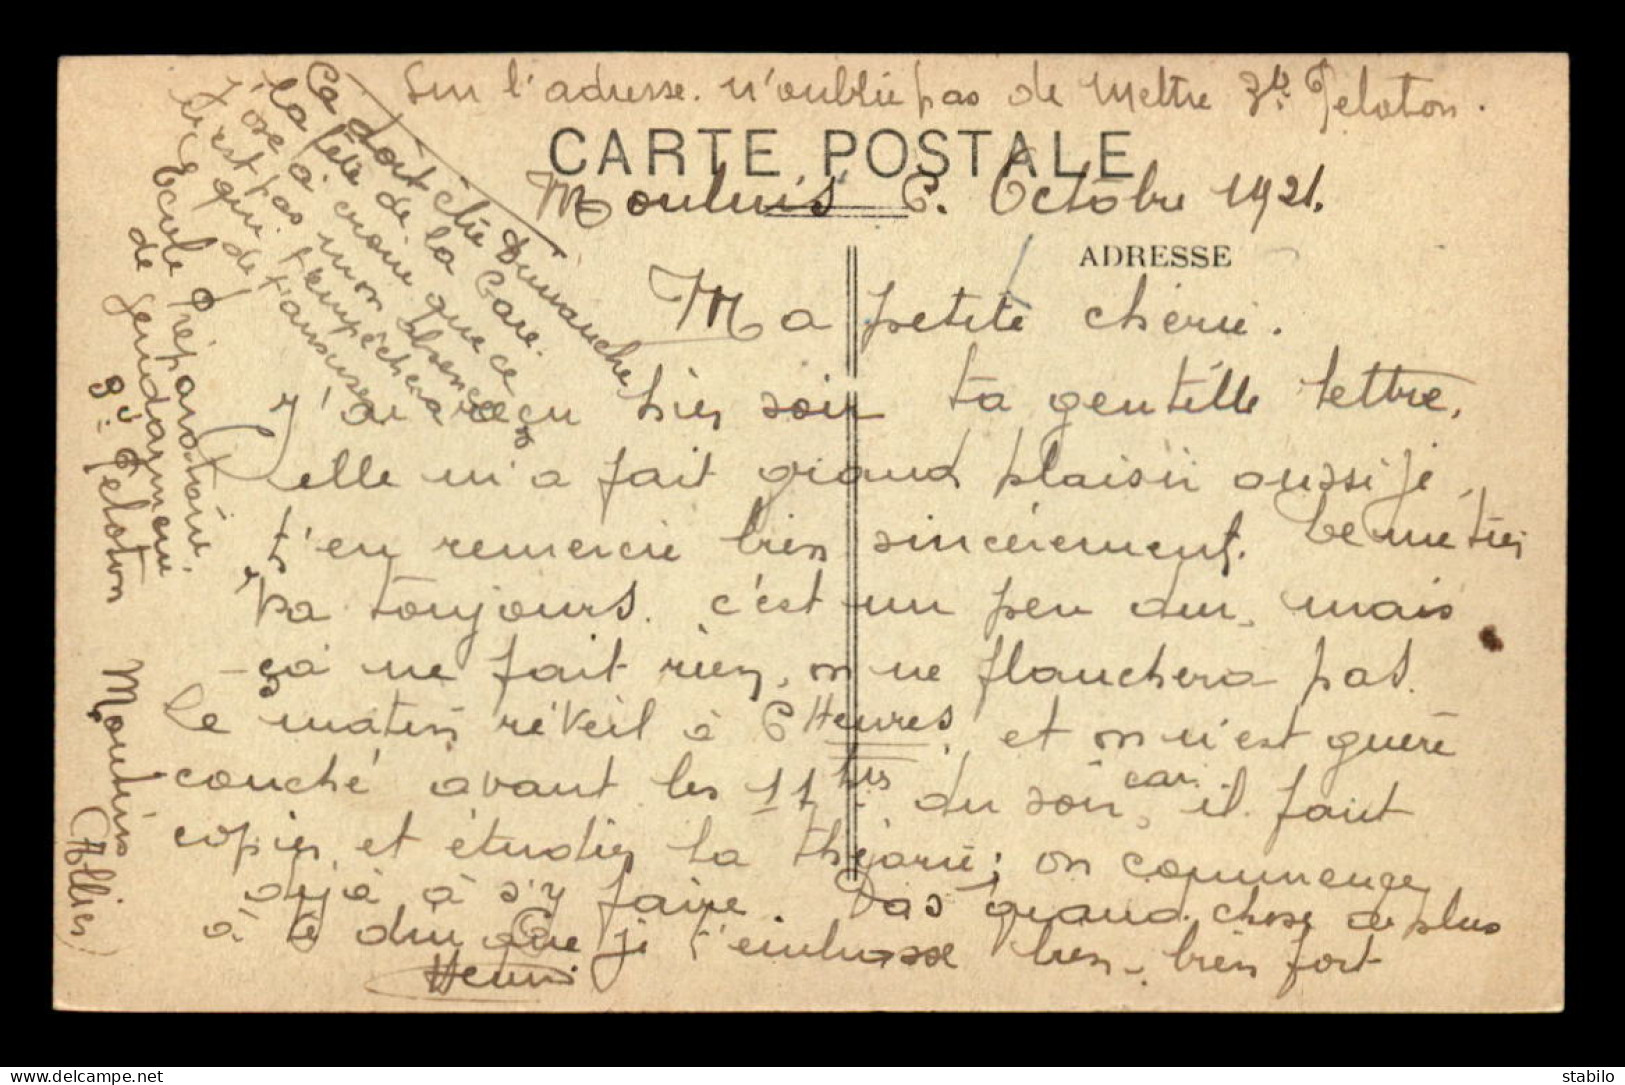 Sur l'adresse. n'oublie pas de mettre 3e. Peloton.
CARTE POSTALE
Moulins 6. Octobre 1921.
ADRESSE
Ma petite chérie.
J'ai reçu hier soir ta gentille lettre,
elle m'a fait grand plaisir aussi je
t'en remercie bien sincèrement. Le métier
va toujours. c'est un peu dur, mais
ça ne fait rien, on ne flanchera pas.
Le matin réveil à 6 Heures, et on n'est guère
couché avant les 11 hrs du soir, car il faut
copier et étudier la théorie; on commence
déjà à s'y faire. Pas grand chose de plus
à te dire que je t'embrasse bien, bien fort
Henri
Ca doit être Dimanche
la fête de la Gare.
J'ose à croire que ce
n'est pas mon absence
qui t'empêchera
de danser
Ecole Préparatoire
de gendarmerie
3e. Peloton Moulins
(Allier)
stabilo